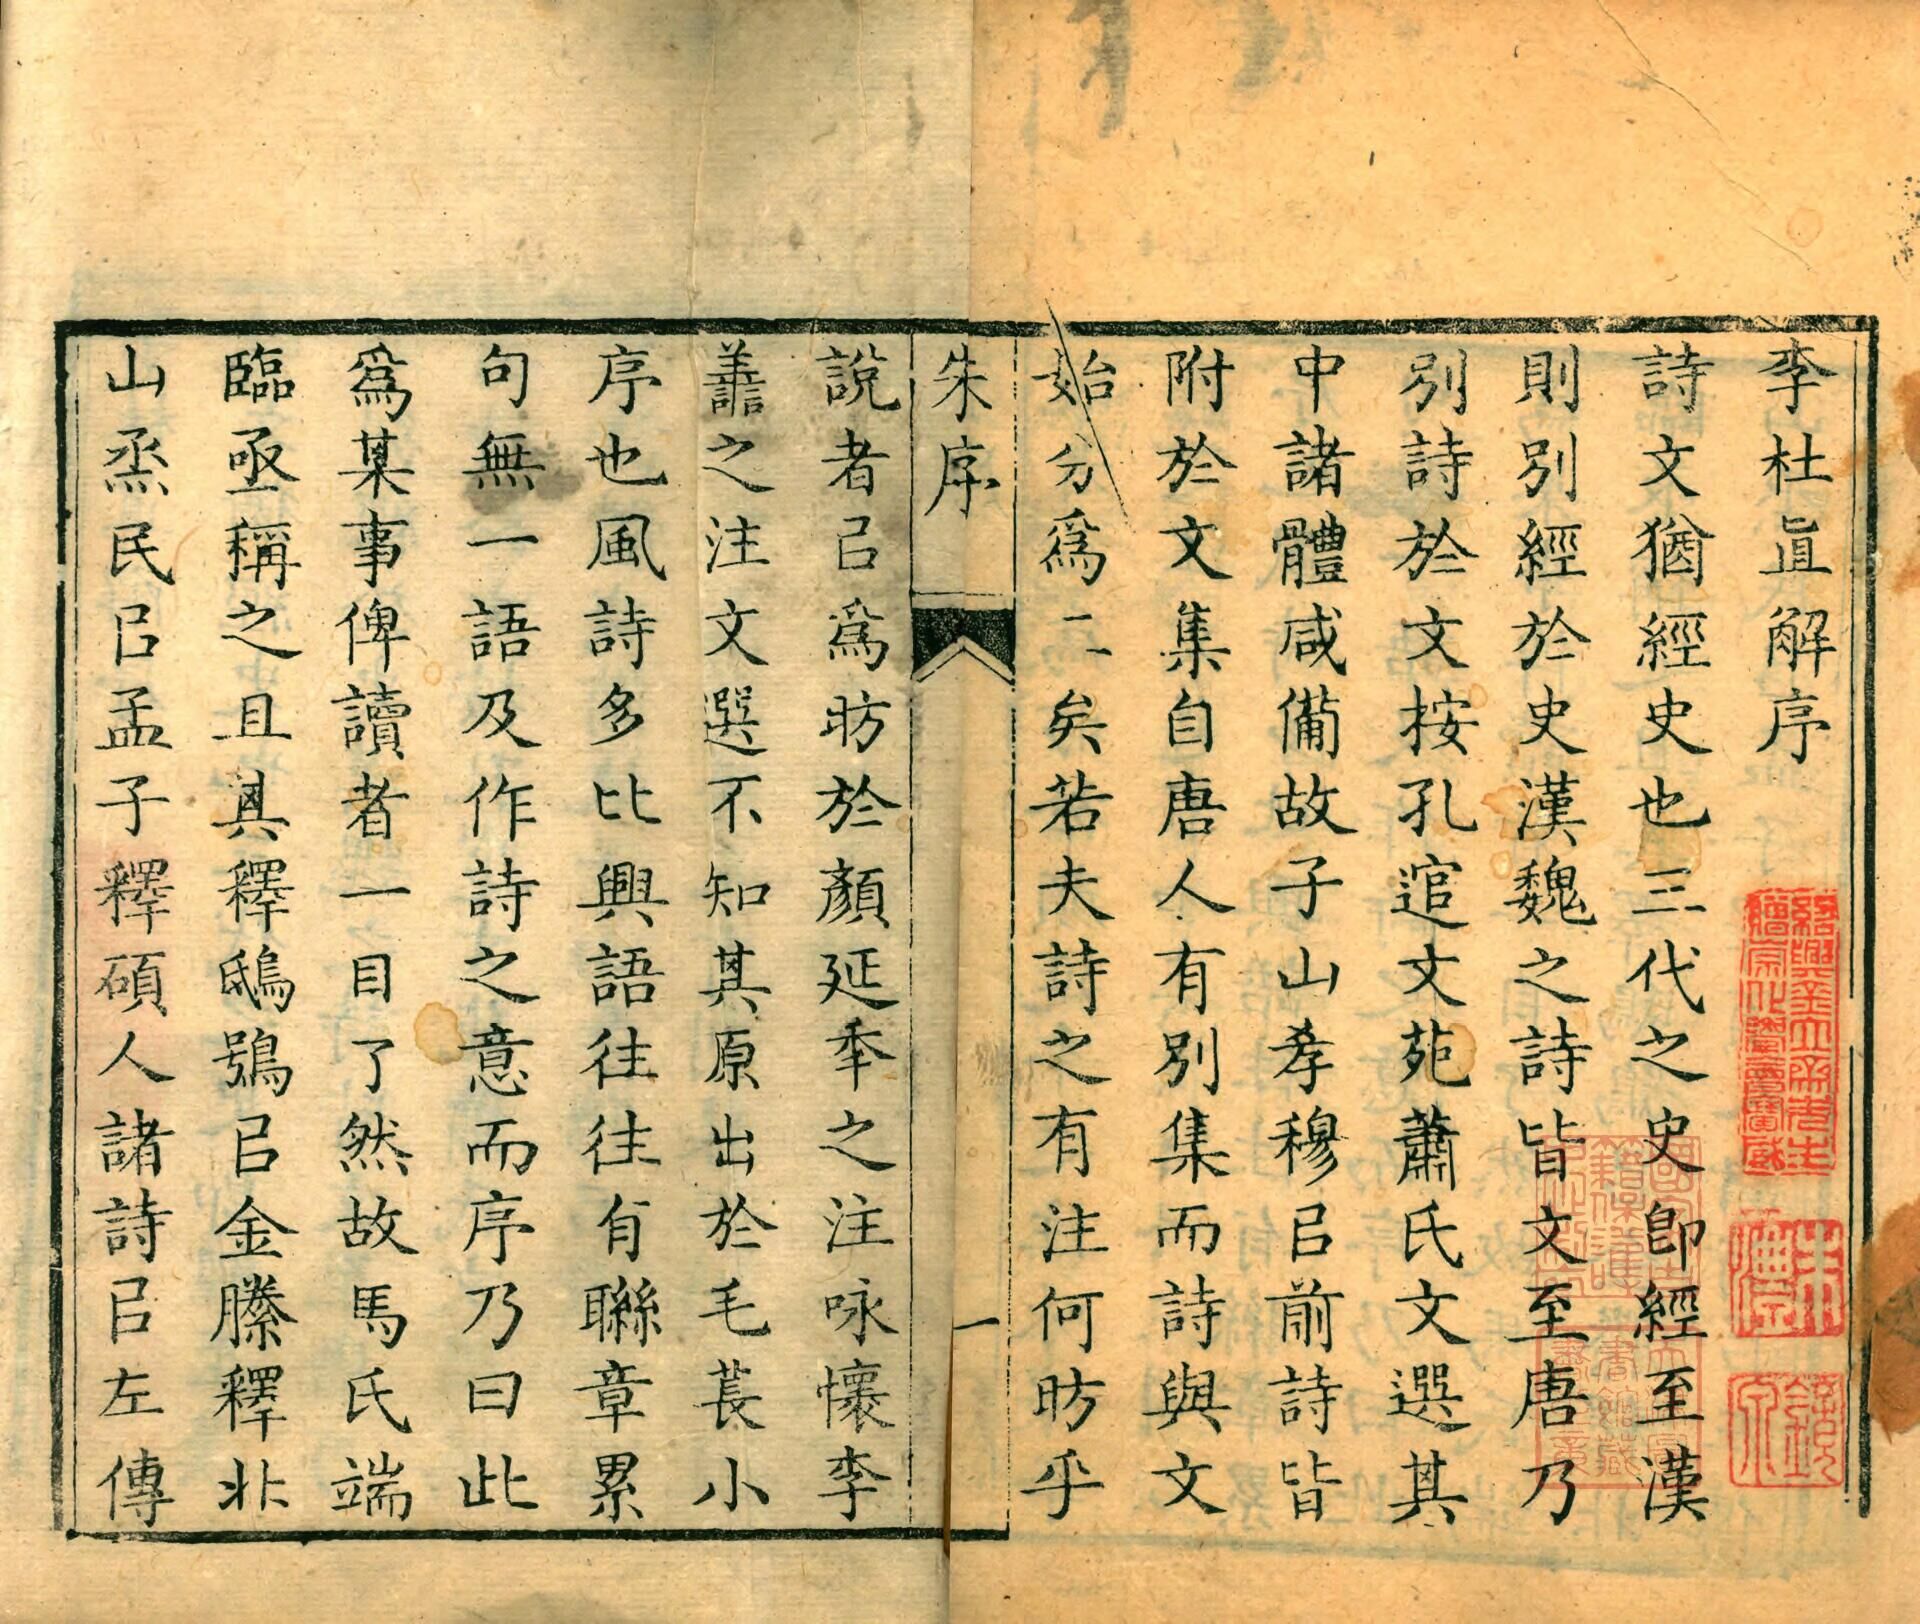 李杜直解序
詩文猶經史也三代之史卽經至漢
則別經於史漢魏之詩皆文至唐乃
別詩於文按孔逭文苑蕭氏文選其
中諸體咸備故子山孝穆㠯前詩皆
附於文集自唐人有別集而詩與文
始分爲二矣若夫詩之有注何昉乎
朱序
一
說者㠯爲昉於顏延秊之注咏懷李
譱之注文選不知其原出於毛萇小
序也風詩多比興語往往有聯章累
句無一語及作詩之意而序乃曰此
爲某事俾讀者一目了然故馬氏端
臨亟稱之且其釋鴟鴞㠯金縢釋北
山烝民㠯孟子釋碩人諸詩㠯左傳